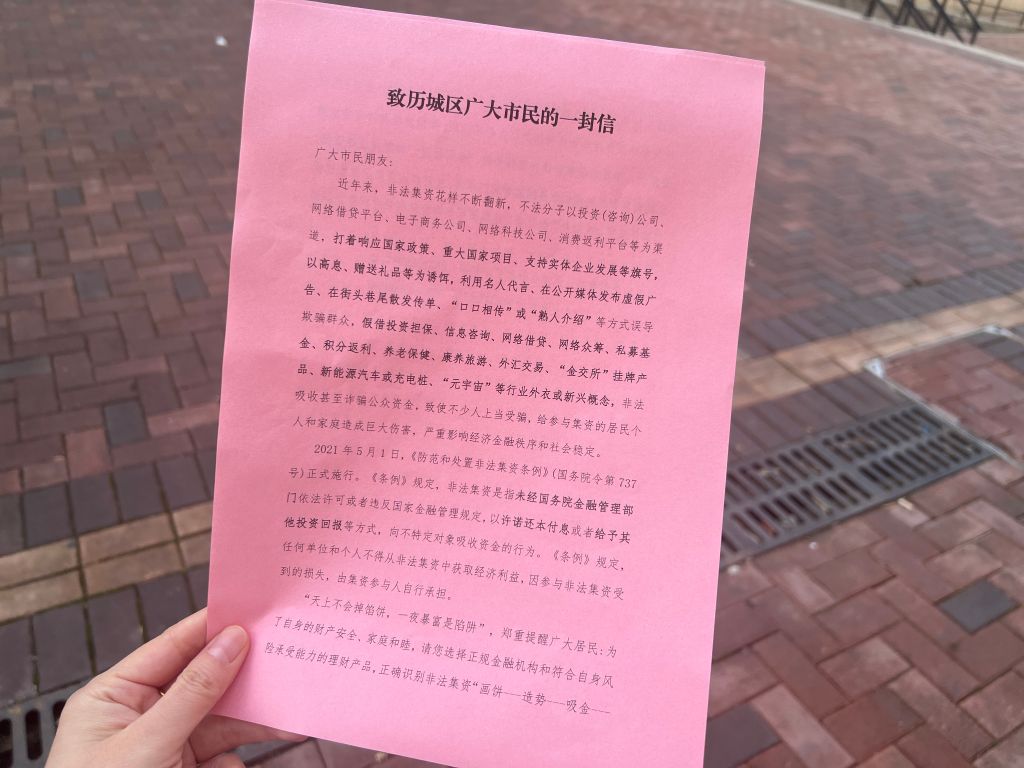 致历城区广大市民的一封信
广大市民朋友：
近年来，非法集资花样不断翻新，不法分子以投资(咨询)公司、
网络借贷平台、电子商务公司、网络科技公司、消费返利平台等为渠
道，打着响应国家政策、重大国家项目、支持实体企业发展等旗号，
以高息、赠送礼品等为诱饵，利用名人代言、在公开媒体发布虚假广
告、在街头巷尾散发传单、“口口相传”或“熟人介绍”等方式误导
欺骗群众，假借投资担保、信息咨询、网络借贷、网络众筹、私募基
金、积分返利、养老保健、康养旅游、外汇交易、“金交所”挂牌产
品、新能源汽车或充电桩、“元宇宙”等行业外衣或新兴概念，非法
吸收甚至诈骗公众资金，致使不少人上当受骗，给参与集资的居民个
人和家庭造成巨大伤害，严重影响经济金融秩序和社会稳定。
2021年5月1日，《防范和处置非法集资条例》(国务院令第737
号)正式施行。《条例》规定，非法集资是指未经国务院金融管理部
门依法许可或者违反国家金融管理规定，以许诺还本付息或者给予其
他投资回报等方式，向不特定对象吸收资金的行为。《条例》规定，
任何单位和个人不得从非法集资中获取经济利益，因参与非法集资受
到的损失，由集资参与人自行承担。
“天上不会掉馅饼，一夜暴富是陷阱”，郑重提醒广大居民：为
了自身的财产安全、家庭和睦，请您选择正规金融机构和符合自身风
险承受能力的理财产品，正确识别非法集资“画饼---造势---吸金---